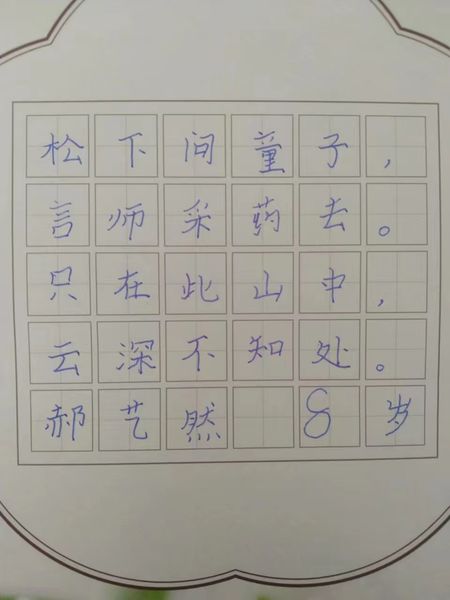 松下问童子，
言师采药去。
只在此山中，
云深不知处。
郝艺然 8岁